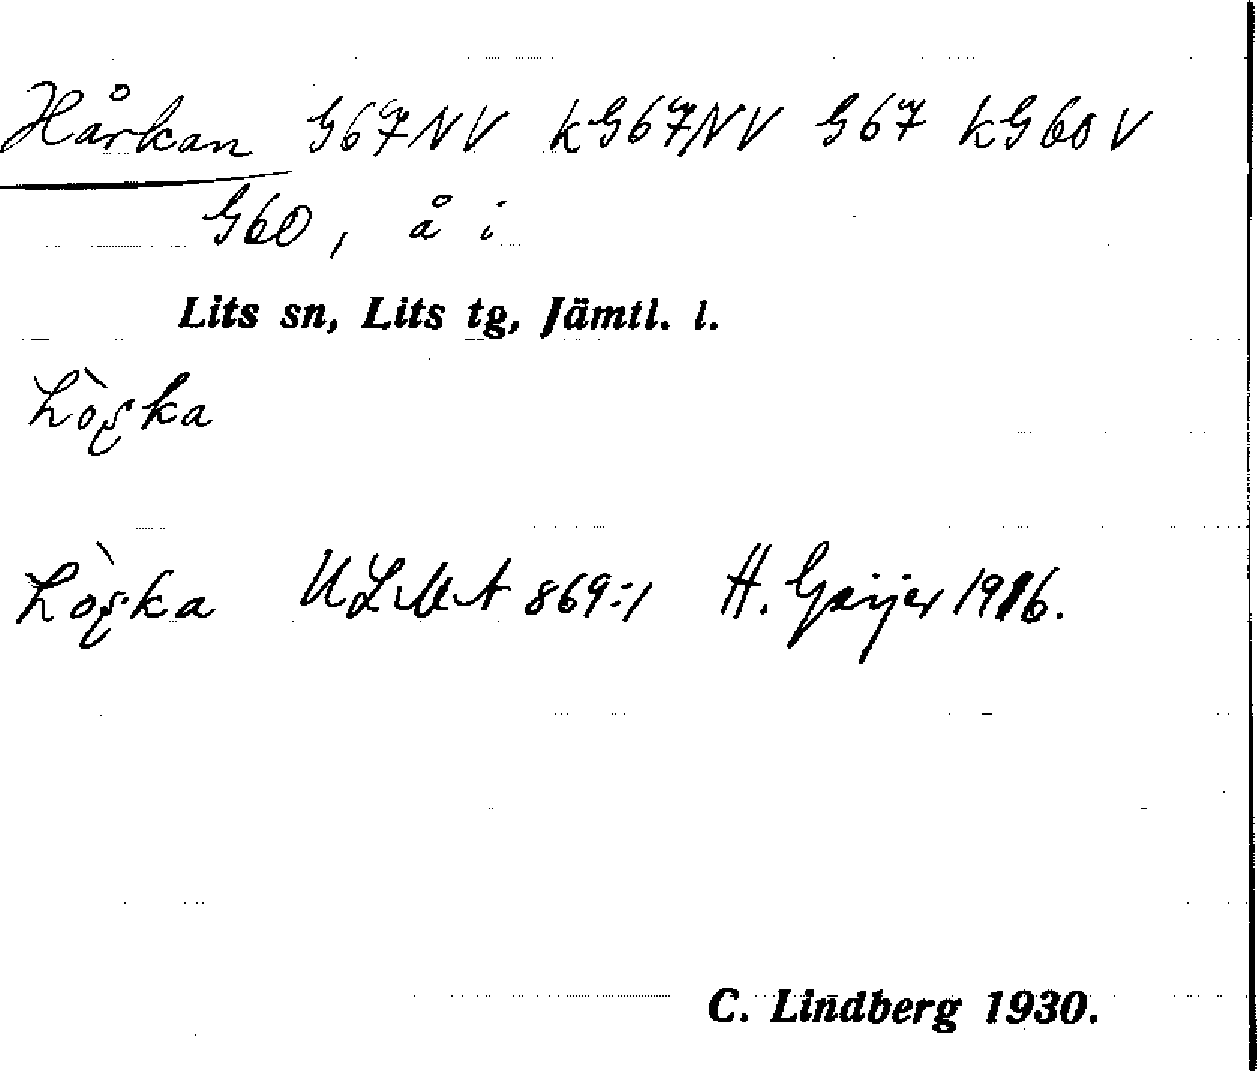 Hårkan G67NV kG67NV G67 kG60V
G60, å i
Lits sn, Lits tg, Jämtl. l.
ULMA 869:1 H. Geijer 1916.
C. Lindberg 1930.